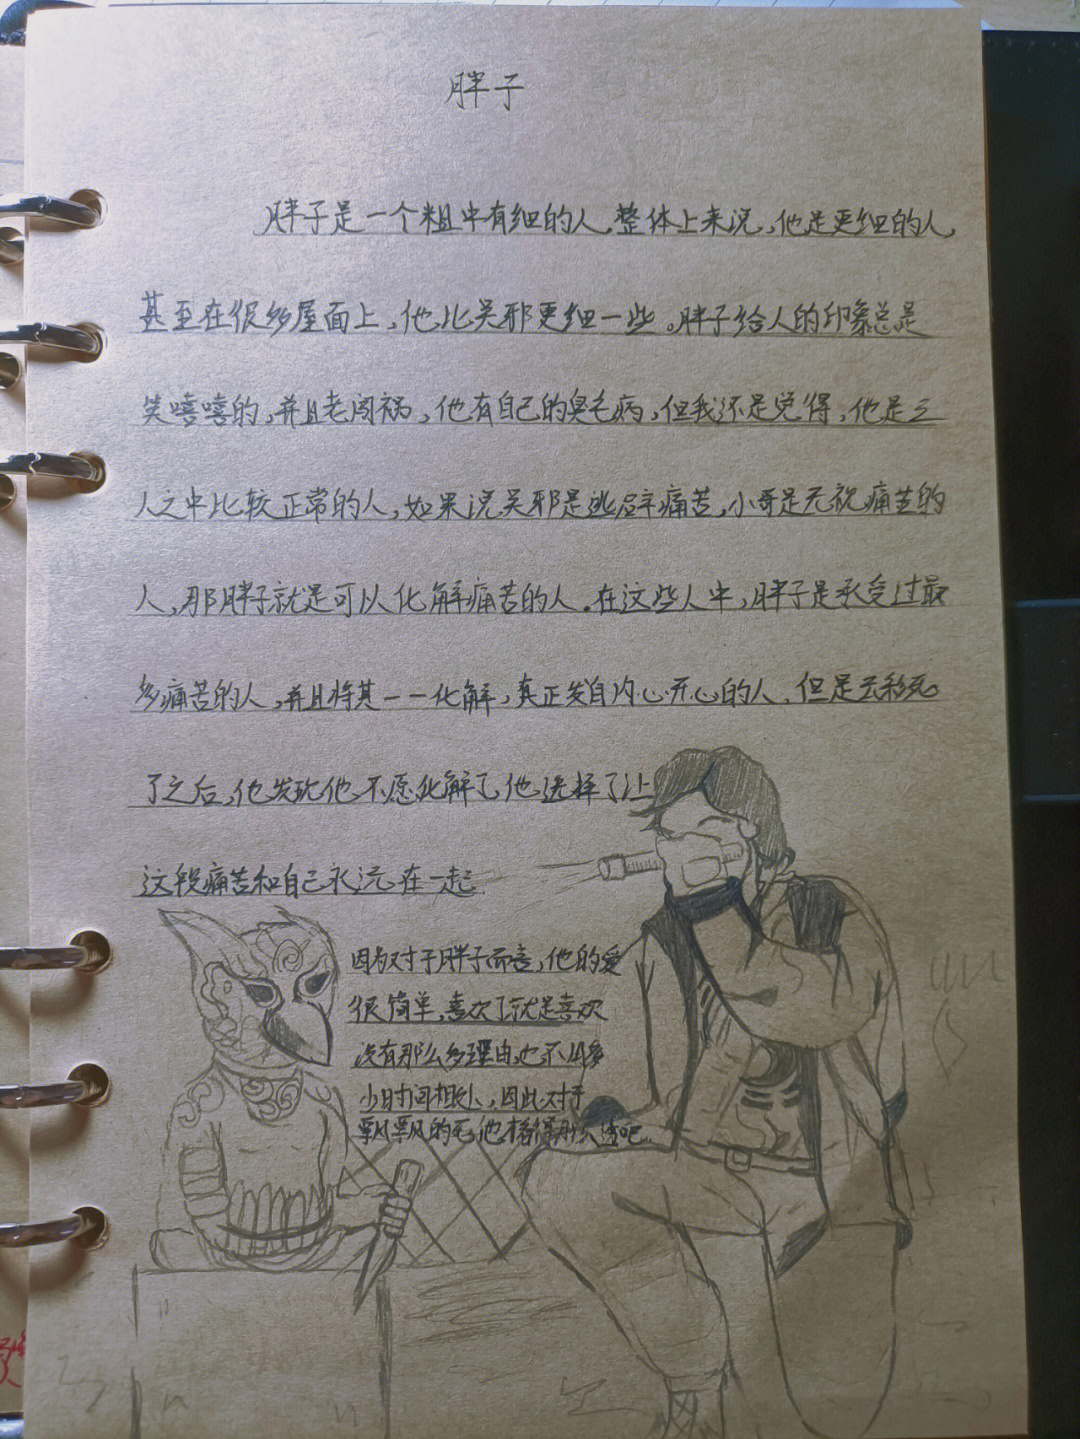 胖子
胖子是一个粗中有细的人，整体上来说，他是更细的人，
甚至在很多层面上，他比吴邪更细一些。胖子给人的印象总是
笑嘻嘻的，并且老闯祸，他有自己的臭毛病，但我还是觉得，他是三
人之中比较正常的人，如果说吴邪是逃避痛苦，小哥是无视痛苦的
人，那胖子就是可以化解痛苦的人。在这些人中，胖子是承受过最
多痛苦的人，并且将其一一化解，真正发自内心开心的人，但是云彩死
了之后，他发现他不愿化解了，他选择了让
这段痛苦和自己永远在一起
因为对于胖子而言，他的爱
很简单，喜欢了就是喜欢
没有那么多理由，也不用多
少时间相处，因此对于
飘飘的死，他才看得那么透吧